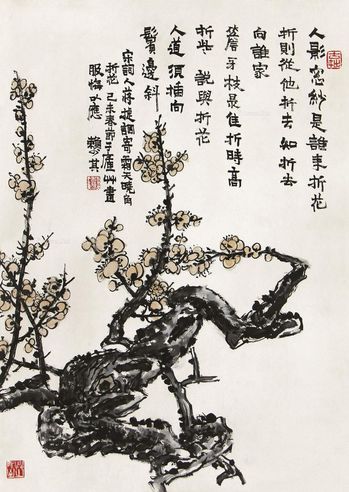 人影窗紗是誰來折花
折則從他折去知折去
向誰家
簷牙枝最佳折時高
折些 說與折花
人道須插向
鬢邊斜
宋詞人蔣捷調寄霜天曉角
折花 己未春節于廬 畫